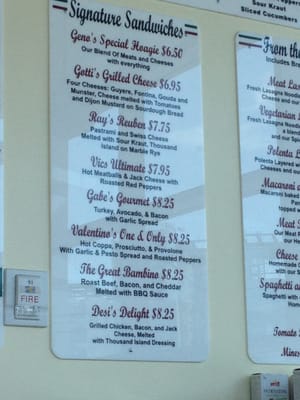 Signature Sandwiches
Geno's Special Hoagie $6.50
Our Blend of Meats and Cheeses
with everything
Gotti's Grilled Cheese $6.95
Four Cheeses: Guyers, Foentina, Gouda and
Munster, Cheese melted with Tomatoes
and Dijon Mustard on Sourdough Bread
Ray's Reuben $7.75
Pastrami and Swiss Cheese
Melted with Sour Kraut, Thousand
Island on Marble Rye
Vics Ultimate $7.95
Hot Meatballs & Jack Cheese with
Roasted Red Peppers
Gabe's Gourmet $8.25
Turkey, Avocado, & Bacon
with Garlic Spread
Valentino's One & Only $8.25
Hot Coppa, Prosciutto, & Provolone
With Garlic & Pesto Spread and Roasted Peppers
The Great Bambino $8.25
Roast Beef, Bacon, and Cheddar
Melted with BBQ Sauce
Desi's Delight $8.25
Grilled Chicken, Bacon, and Jack
Cheese, Melted
with Thousand Island Dressing
FIRE
Sour Kraut
Sliced Cucumbers
From the
Includes
Meat
Fresh Lasagna
Vegetarian
Fresh Lasagna
Polenta
Polenta Layered
Macaroni
Macaroni baked
topped
Meat
Our Meat
Cheese
Homemade
with
Spaghetti
Spaghetti with
Homemade
Tomato